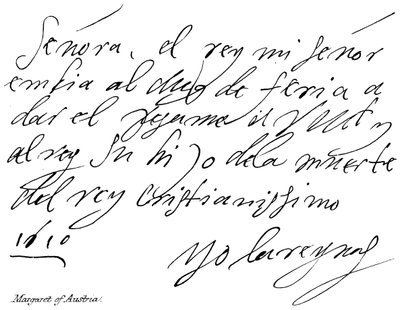 Señora, el rey mi señor
embia al duq de feria a
dar el pesame a V Mt y
al rey su hijo de la muerte
del rey cristianissimo
1610
yo la reyna
Margaret of Austria.